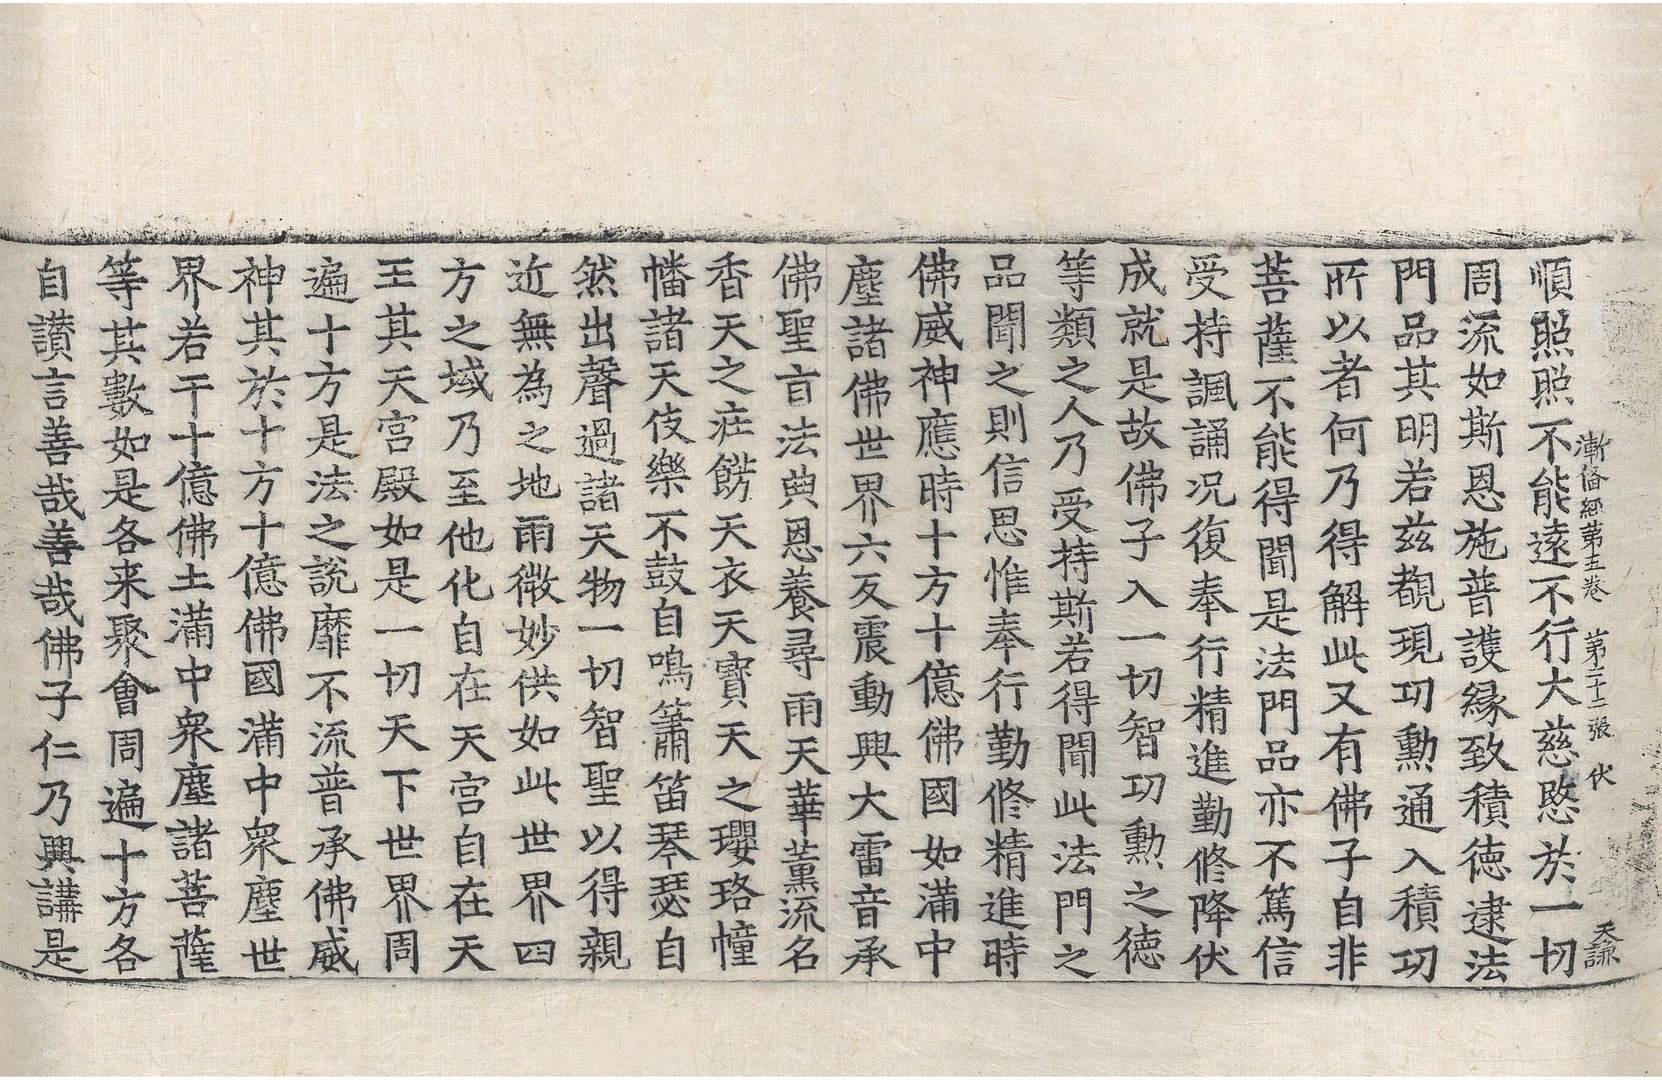 漸備經第五卷 第二十二張 伏
天謙
順照照不能遠不行大慈愍於一切
周流如斯恩施普護緣致積德逮法
門品其明若兹覩現功勳通入積功
所以者何乃得解此又有佛子自非
菩薩不能得聞是法門品亦不篤信
受持諷誦況復奉行精進勤修降伏
成就是故佛子入一切智功勲之德
等類之人乃受持斯若得聞此法門之
品聞之則信思惟奉行勤修精進時
佛威神應時十方十億佛國如滿中
塵諸佛世界六反震動興大雷音承
佛聖旨法典恩養尋雨天華薰流名
香天之疘餝天衣天寶天之瓔珞幢
幡諸天伎樂不鼓自鳴簫笛琴瑟自
然出聲過諸天物一切智聖以得親
近無為之地雨微妙供如此世界四
方之域乃至他化自在天宮自在天
王其天宮殿如是一切天下世界周
遍十方是法之說靡不流普承佛威
神其於十方十億佛國滿中衆塵世
界若干十億佛土滿中衆塵諸菩薩
等其數如是各来聚會周遍十方各
自讃言善哉善哉佛子仁乃興講是